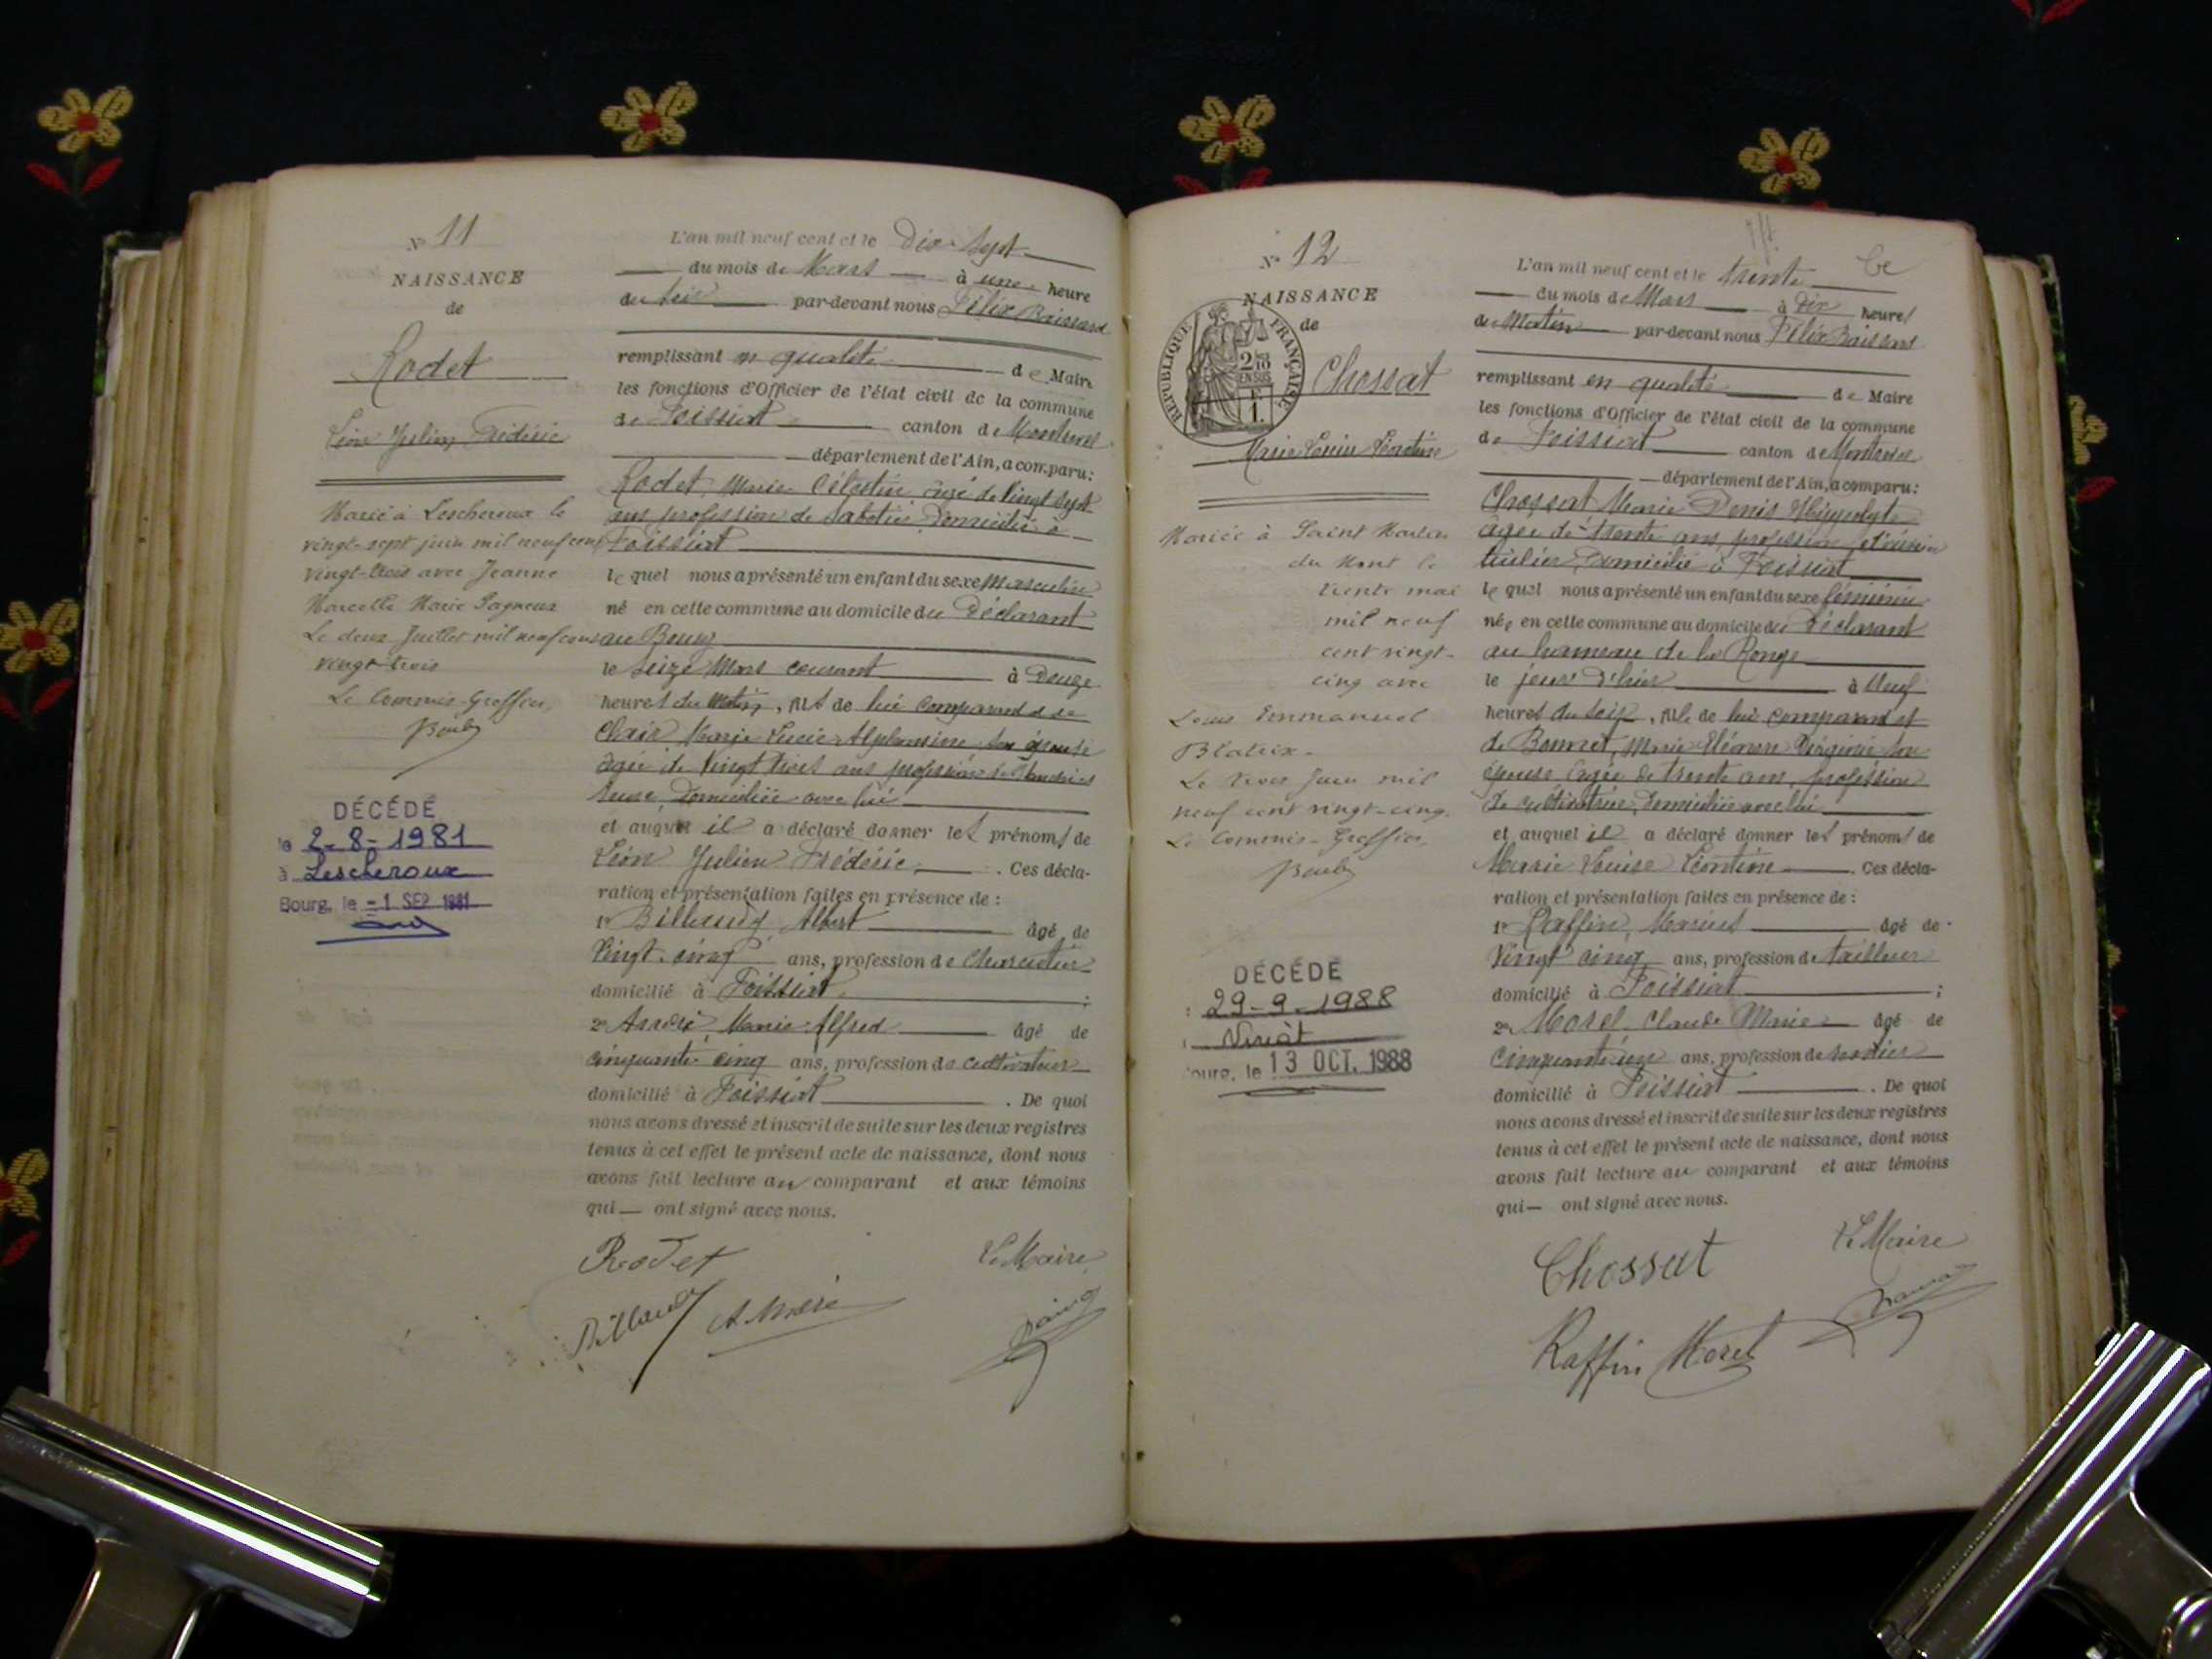 N° 11
NAISSANCE
de
Rodet
Léon Julien Frédéric
Marié à Lescheroux le
vingt-sept juin mil neuf cent
vingt-trois avec Jeanne
Marcelle Marie
Le deux Juillet mil neuf cent
vingt-trois
Le Commis-Greffier,
DÉCÉDÉ
le 2-8-1981
à Lescheroux
Bourg, le -1 SEP 1981
L'an mil neuf cent et le Dix Sept
du mois de Mars à une heure
du soir par-devant nous Félix
remplissant en qualité de Maire
les fonctions d'Officier de l'état civil de la commune
de Foissiat canton de Montrevel
département de l'Ain, a comparu:
Rodet Marie Célestin âgé de Vingt Sept
ans profession de Sabotier Domicilié à
Foissiat
lequel nous a présenté un enfant du sexe Masculin
né en cette commune au domicile du Déclarant
au Bourg
le Seize Mars courant à Douze
heures du Matin, fils de lui comparant & de
Clair Marie Lucie Alphonsine son épouse
âgée de Vingt trois ans profession de
Domiciliée avec lui
et auquel il a déclaré donner les prénoms de
Léon Julien Frédéric. Ces décla-
ration et présentation faites en présence de :
1° Billaudy Albert âgé de
Vingt-cinq ans, profession de Charcutier
domicilié à Foissiat ;
2° Marie Alfred âgé de
cinquante cinq ans, profession de cultivateur
domicilié à Foissiat. De quoi
nous avons dressé et inscrit de suite sur les deux registres
tenus à cet effet le présent acte de naissance, dont nous
avons fait lecture au comparant et aux témoins
qui — ont signé avec nous.
Rodet Le Maire
N° 12
NAISSANCE
de
RÉPUBLIQUE FRANÇAISE
2/10
EN SUS
Chossat
Marie Louise Léontine
Mariée à Saint Martin
du Mont le
trente mai
mil neuf
cent vingt-
cinq avec
Louis Emmanuel
Blatrix.
Le trois Juin mil
neuf cent vingt-cinq.
Le Commis-Greffier,
DÉCÉDÉ
29-9-1988
Viriat
ourg, le 13 OCT. 1988
L'an mil neuf cent et le trente
du mois de Mars à Dix heures
du Matin par-devant nous Félix
remplissant en qualité de Maire
les fonctions d'Officier de l'état civil de la commune
de Foissiat canton de Montrevel
département de l'Ain, a comparu:
Chossat Marie Denis Hippolyte
âgé de trente ans, profession
Domicilié à Foissiat
lequel nous a présenté un enfant du sexe féminin
née en cette commune au domicile du Déclarant
au hameau de la Ronge
le jour d'hier à Neuf
heures du soir, fille de lui comparant et
de Bonnet, Marie Eléonore Virginie son
épouse âgée de trente ans, profession
de cultivatrice, domiciliée avec lui
et auquel il a déclaré donner les prénoms de
Marie Louise Léontine. Ces décla-
ration et présentation faites en présence de :
1° Raffin Marius âgé de
Vingt cinq ans, profession de tailleur
domicilié à Foissiat ;
2° Morel Claude Marie âgé de
Cinquante un ans, profession de
domicilié à Foissiat. De quoi
nous avons dressé et inscrit de suite sur les deux registres
tenus à cet effet le présent acte de naissance, dont nous
avons fait lecture au comparant et aux témoins
qui — ont signé avec nous.
Chossat Le Maire
Raffin Morel